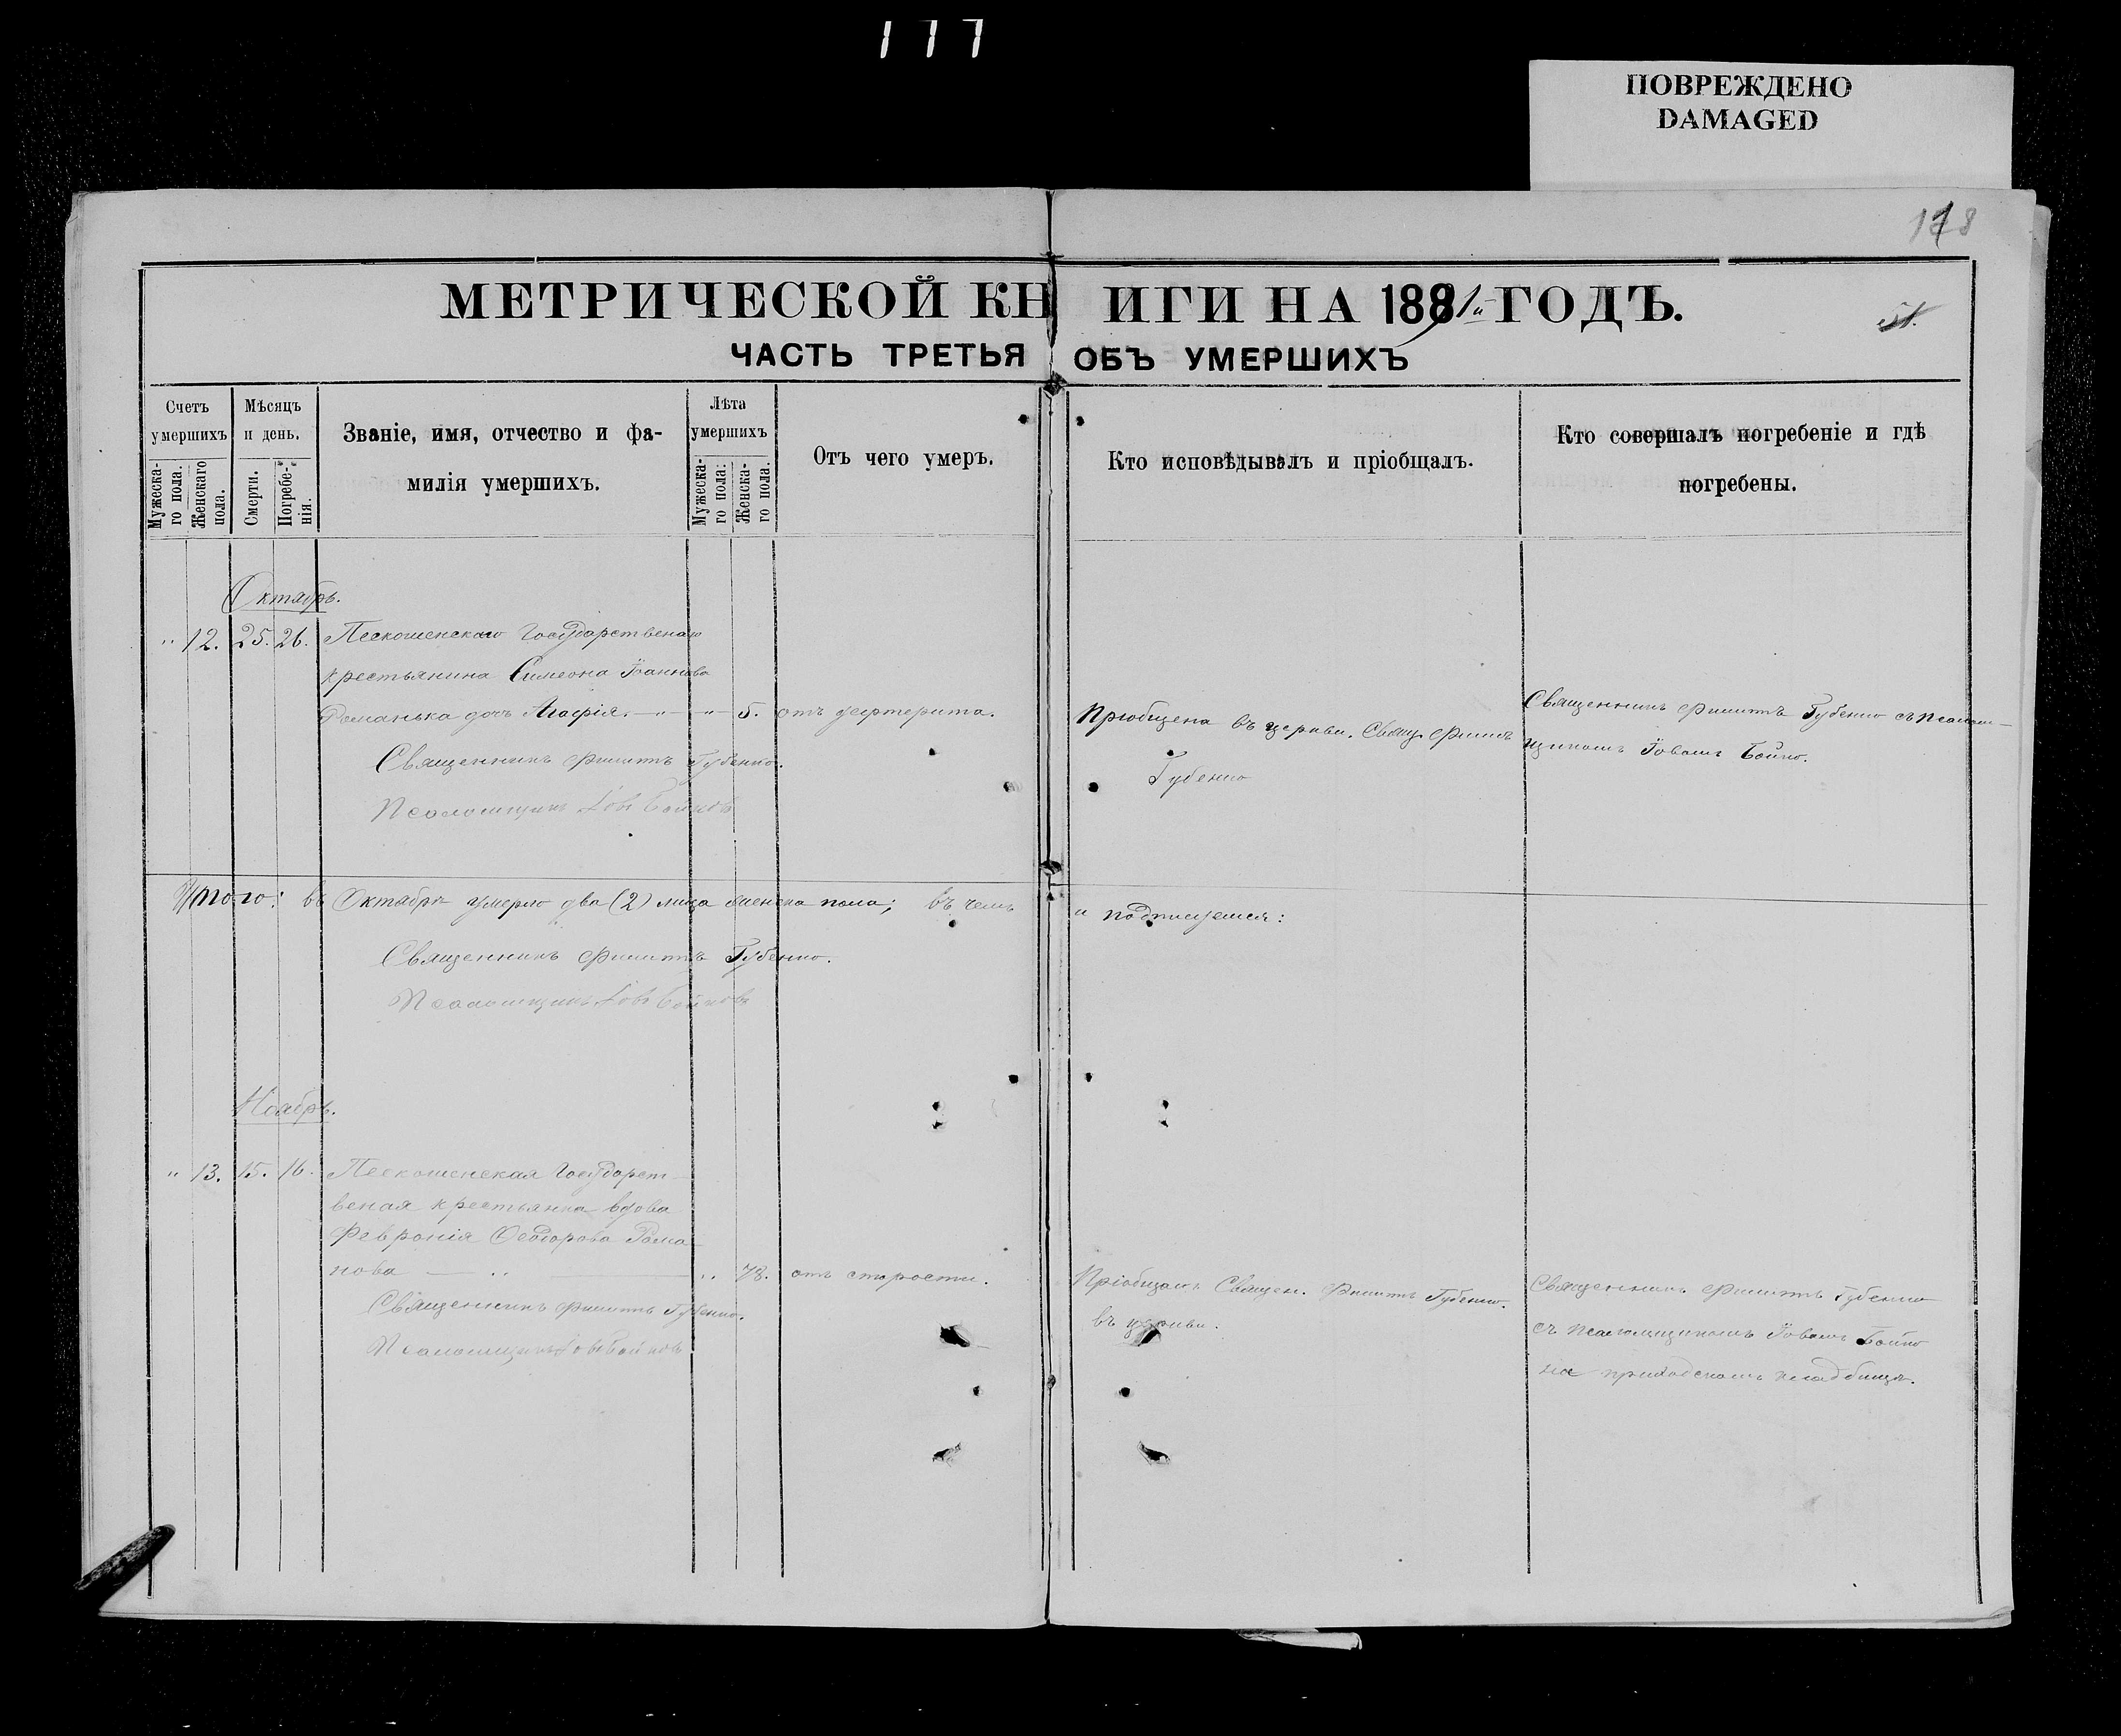 177
ПОВРЕЖДЕНО
DAMAGED
178
МЕТРИЧЕСКОЙ КНИГИ НА 1881-й ГОДЪ.
ЧАСТЬ ТРЕТЬЯ ОБЪ УМЕРШИХЪ
Счетъ умершихъ
Мужеска-го пола.
Женскаго пола.
Мѣсяцъ и день.
Смерти.
Погребе-нія.
Званіе, имя, отчество и фа-
милія умершихъ.
Лѣта умершихъ
Мужеска-го пола.
Женска-го пола.
Отъ чего умеръ.
Кто исповѣдывалъ и пріобщалъ.
Кто совершалъ погребеніе и гдѣ
погребены.
Октябрь.
" 12. 25. 26. Пескошенскаго Государственаго
крестьянина Симеона Іоаннова
Романька дочь Агафія. — " — " — 5. отъ дифтерита.
Священникъ Филиппъ Губенко.
Псаломщикъ Іовъ Бойковъ
Пріобщена въ церкви. Свящ. Филипъ
Губенко
Священникъ Филиппъ Губенко съ псалом-
щикомъ Іовомъ Бойко.
Итого: въ Октябрѣ умерло два (2) лица женска пола; въ чемъ и подписуемся:
Священникъ Филиппъ Губенко.
Псаломщикъ Іовъ Бойковъ
Ноябрь.
" 13. 15. 16. Пескошенская Государст-
веная крестьянка вдова
Февронія Ѳеодорова Рома-
нова — " — " 78. отъ старости.
Священникъ Филиппъ Губенко.
Псаломщикъ Іовъ Бойковъ
Пріобщалъ Священ. Филиппъ Губенко.
въ церкви.
Священникъ Филиппъ Губенко
съ псаломщикомъ Іовомъ Бойко
на приходскомъ кладбищѣ.